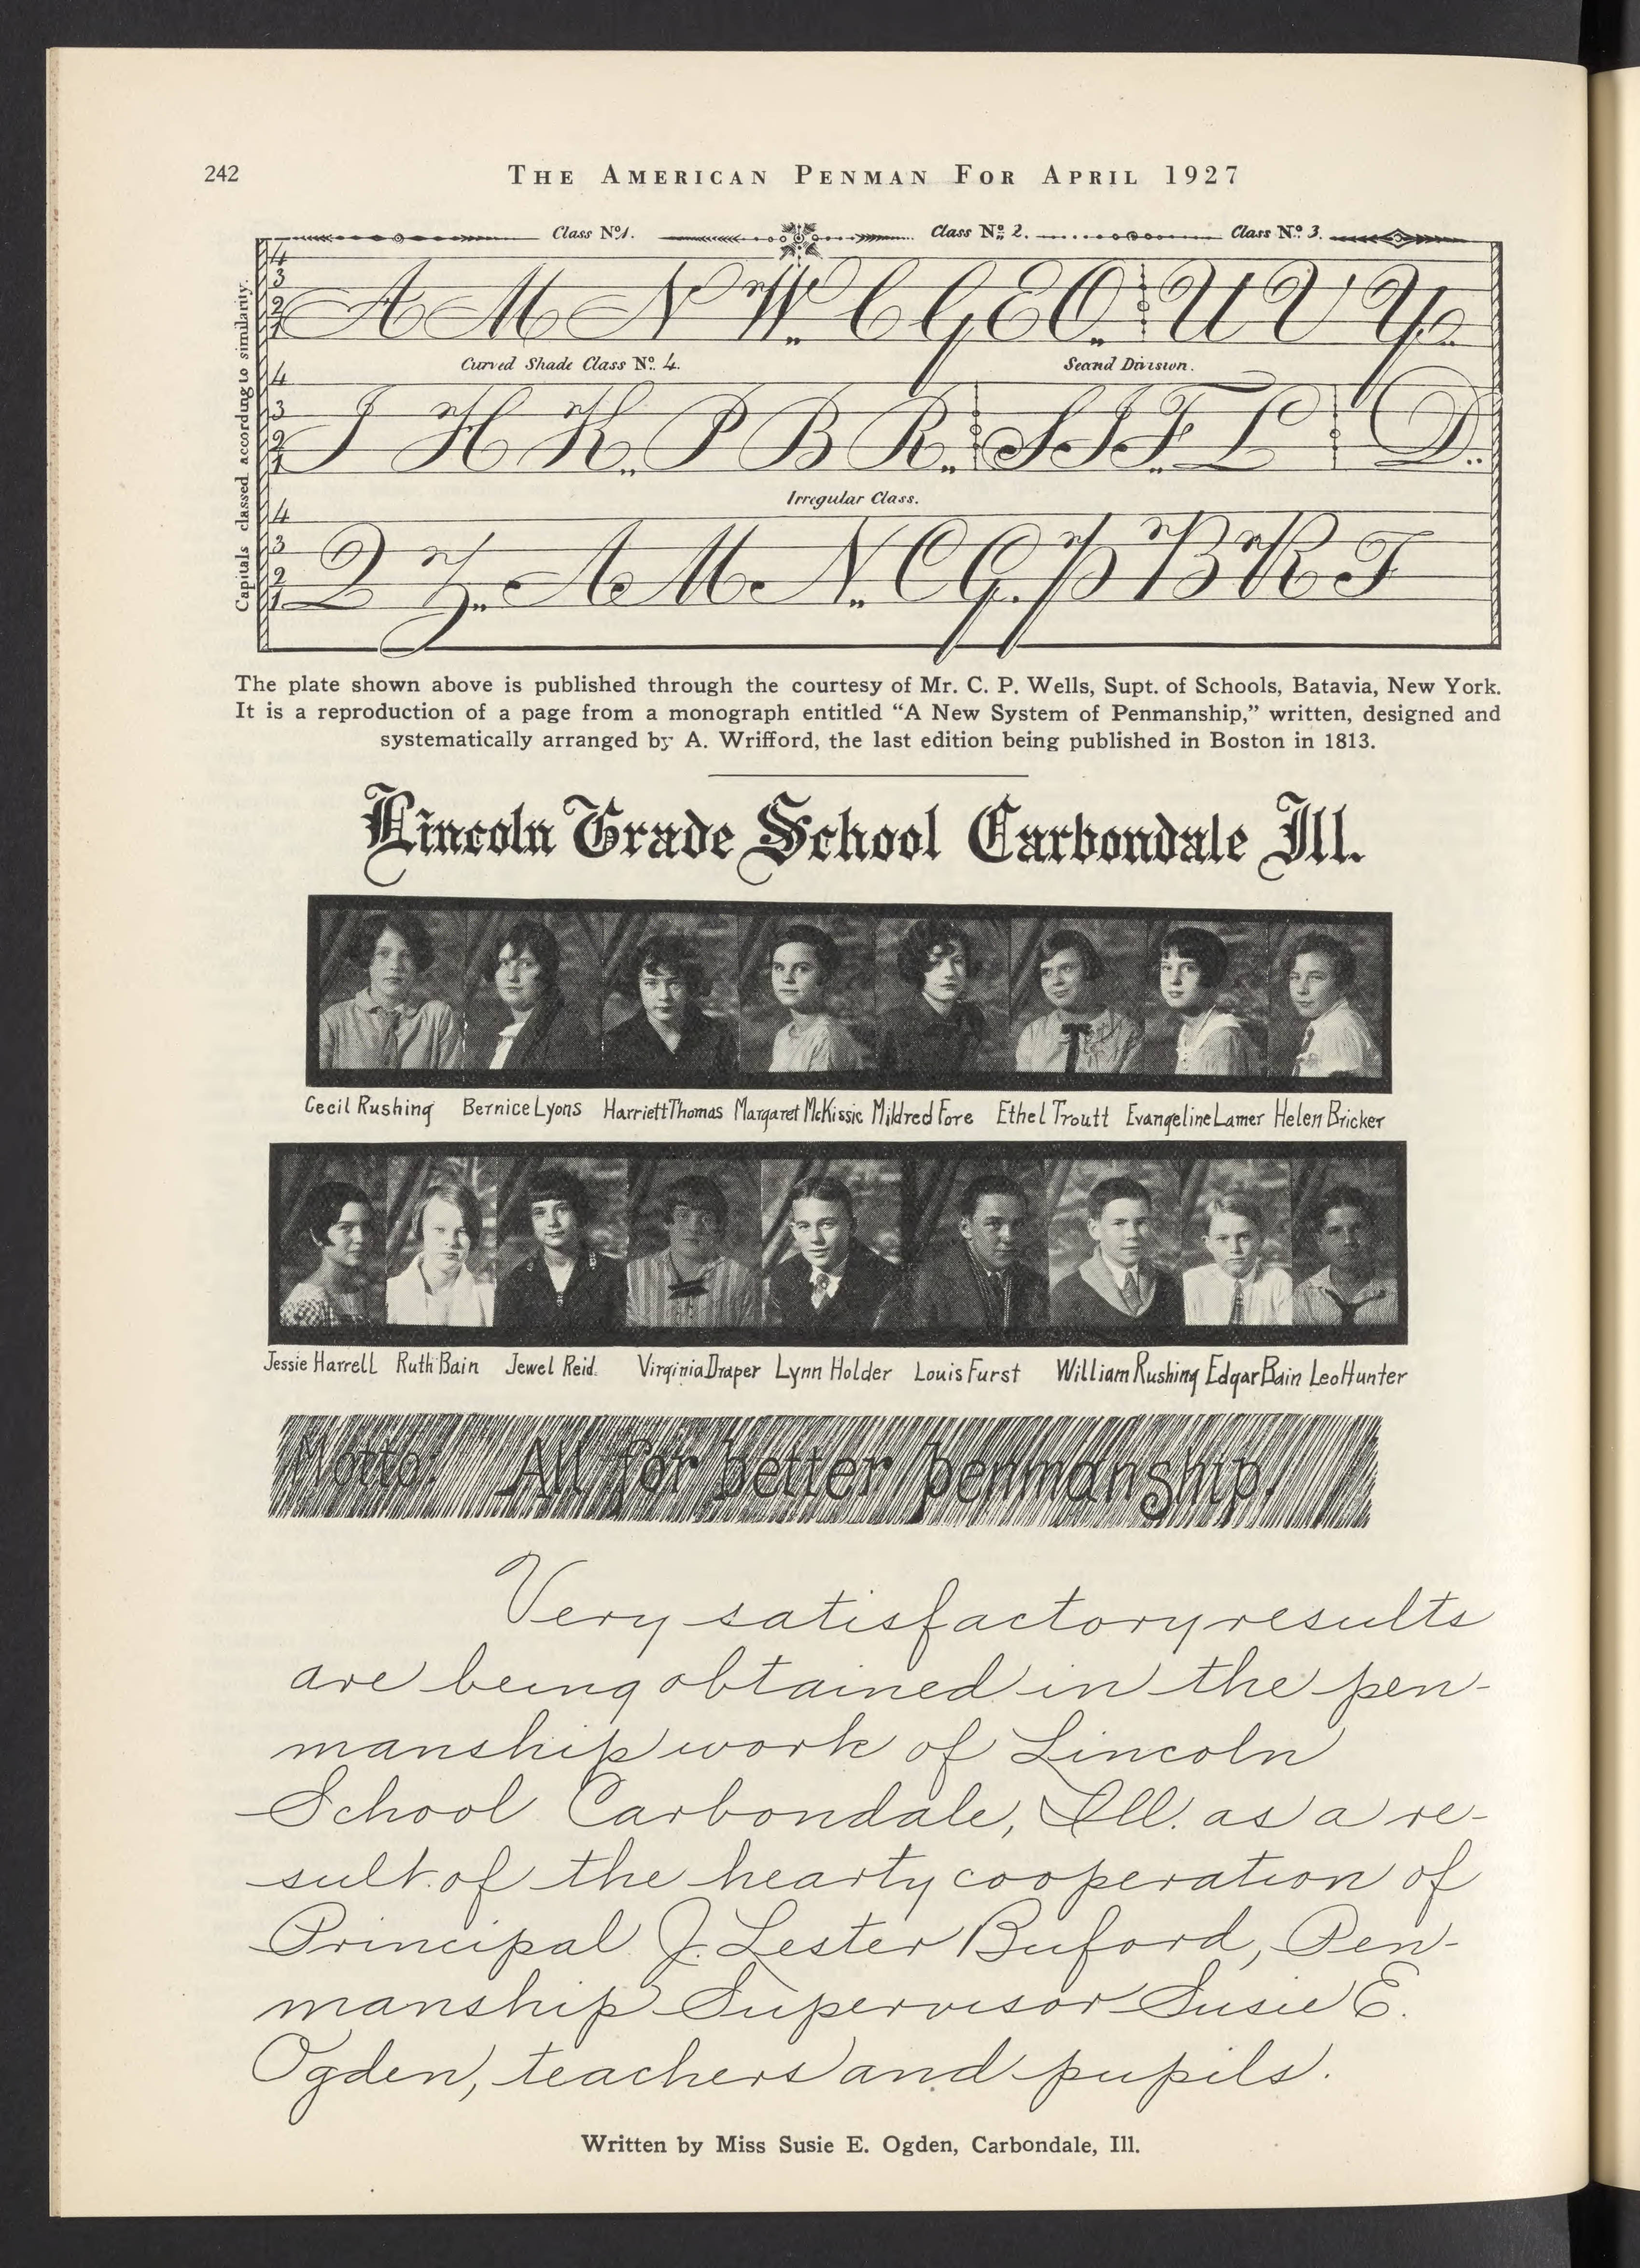 242
THE AMERICAN PENMAN FOR APRIL 1927
Class Nº1. Class Nº 2. Class Nº 3.
Capitals classed according to similarity.
4
3
2
1
A M N W. C G E O. U V Y.
Curved Shade Class Nº. 4. Second Division.
4
3
2
1
J H K. P B R. S I F. L D.
Irregular Class.
4
3
2
1
Q Z. A M. N. C G. P B R T
The plate shown above is published through the courtesy of Mr. C. P. Wells, Supt. of Schools, Batavia, New York.
It is a reproduction of a page from a monograph entitled “A New System of Penmanship,” written, designed and
systematically arranged by A. Wrifford, the last edition being published in Boston in 1813.
Lincoln Grade School Carbondale Ill.
Cecil Rushing Bernice Lyons Harriett Thomas Margaret McKissic Mildred Fore Ethel Troutt Evangeline Lamer Helen Bricker
Jessie Harrell Ruth Bain Jewel Reid. Virginia Draper Lynn Holder Louis Furst William Rushing Edgar Bain Leo Hunter
Motto: All for better penmanship.
Very satisfactory results
are being obtained in the pen-
manship work of Lincoln
School Carbondale, Ill. as a re-
sult of the hearty cooperation of
Principal J. Lester Buford, Pen-
manship Supervisor Susie E.
Ogden, teachers and pupils.
Written by Miss Susie E. Ogden, Carbondale, Ill.